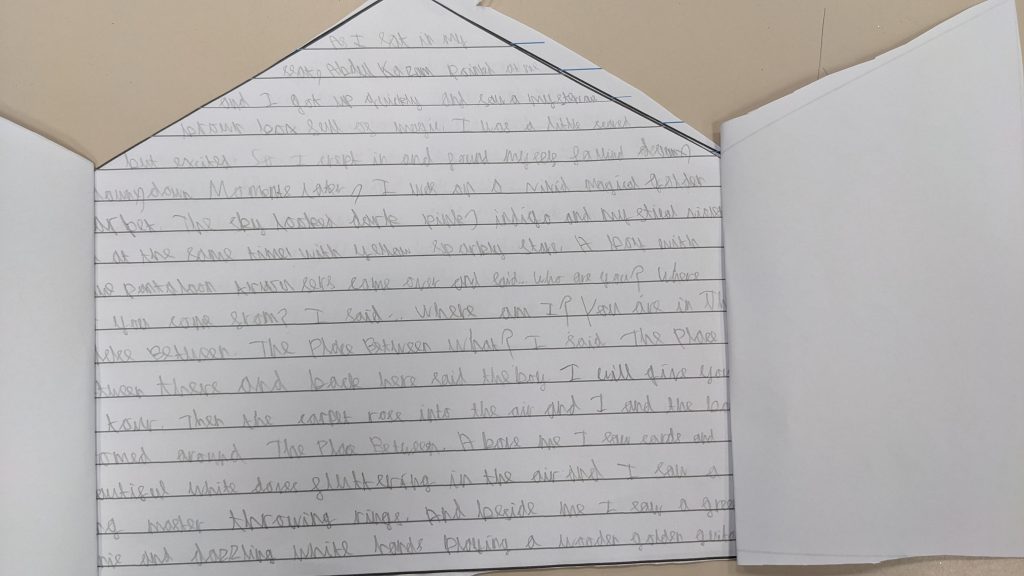 As I sat in my
seat, Abdul Kazam pointed at me
and I got up quickly and saw a mysterious
brown box full of magic. I was a little scared
but excited. So I crept in and found myself falling down,
down, down Momonse later, I was on a vivid magical golden
The sky looked dark pink, indigo and mystical
at the same time, with yellow sparkly stars. A boy with
pantaloon came over and said.. who are you? Where
you come from? I said.. Where am I? You are in Th
Between. The Place Between what? I said The Place
tween there and back here said the boy. I will give you
tour. Then the carpet rose into the air and I and the bo
omed around The Place Between. Above me I saw cards and
autiful white doves fluttering in the air and I saw a
ng master throwing rings. And beside me I saw a gree
nie and dazzling white hands playing a wooden golden guita